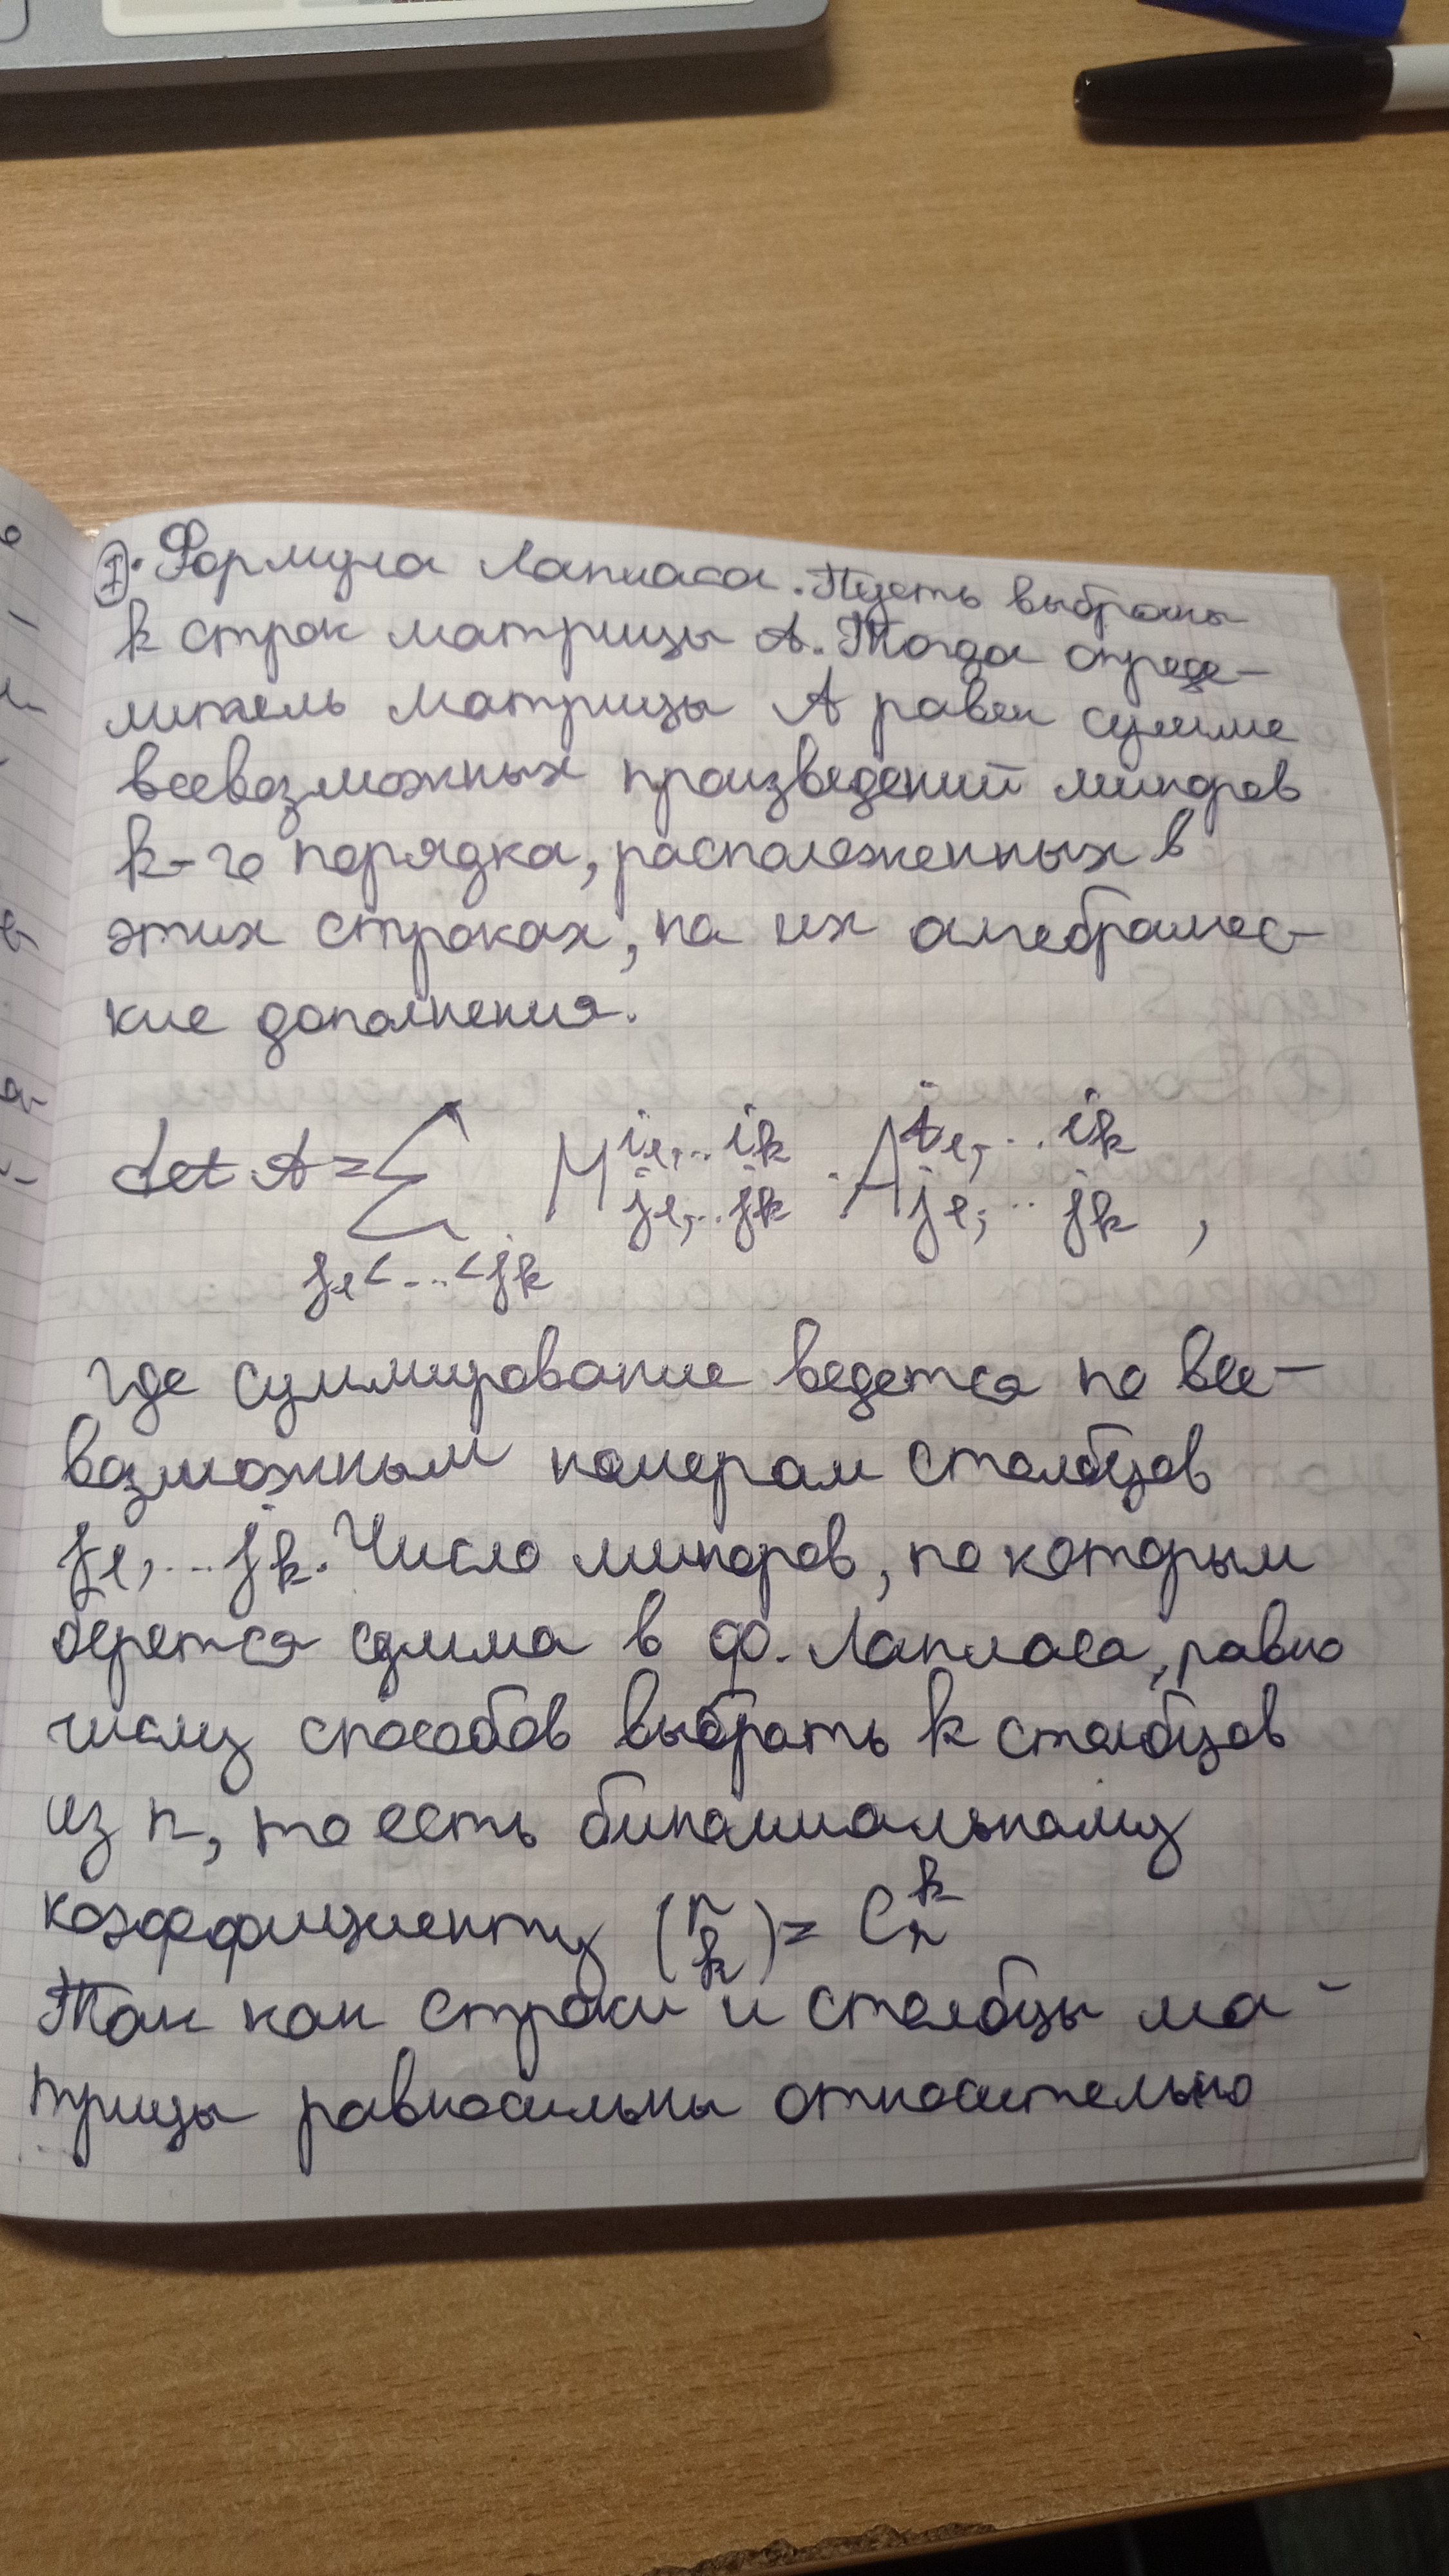 ①. Формула Лапласа. Пусть выбраны
k строк матрицы A. Тогда опреде-
литель матрицы A равен сумме
всевозможных произведений миноров
k-го порядка, расположенных в
этих строках, на их алгебраичес-
кие дополнения.
det A = ∑ M^{i₁,...iₖ}_{j₁,...jₖ} · A^{i₁,...iₖ}_{j₁,...jₖ} ,
j₁<...<jₖ
где суммирование ведется по все-
возможным номерам столбцов
j₁,...jₖ. Число миноров, по которым
берется сумма в ф. Лапласа, равно
числу способов выбрать k столбцов
из n, то есть биномиальному
коэффициенту (n k) = Cₙᵏ
Так как строки и столбцы ма-
трицы равносильны относительно